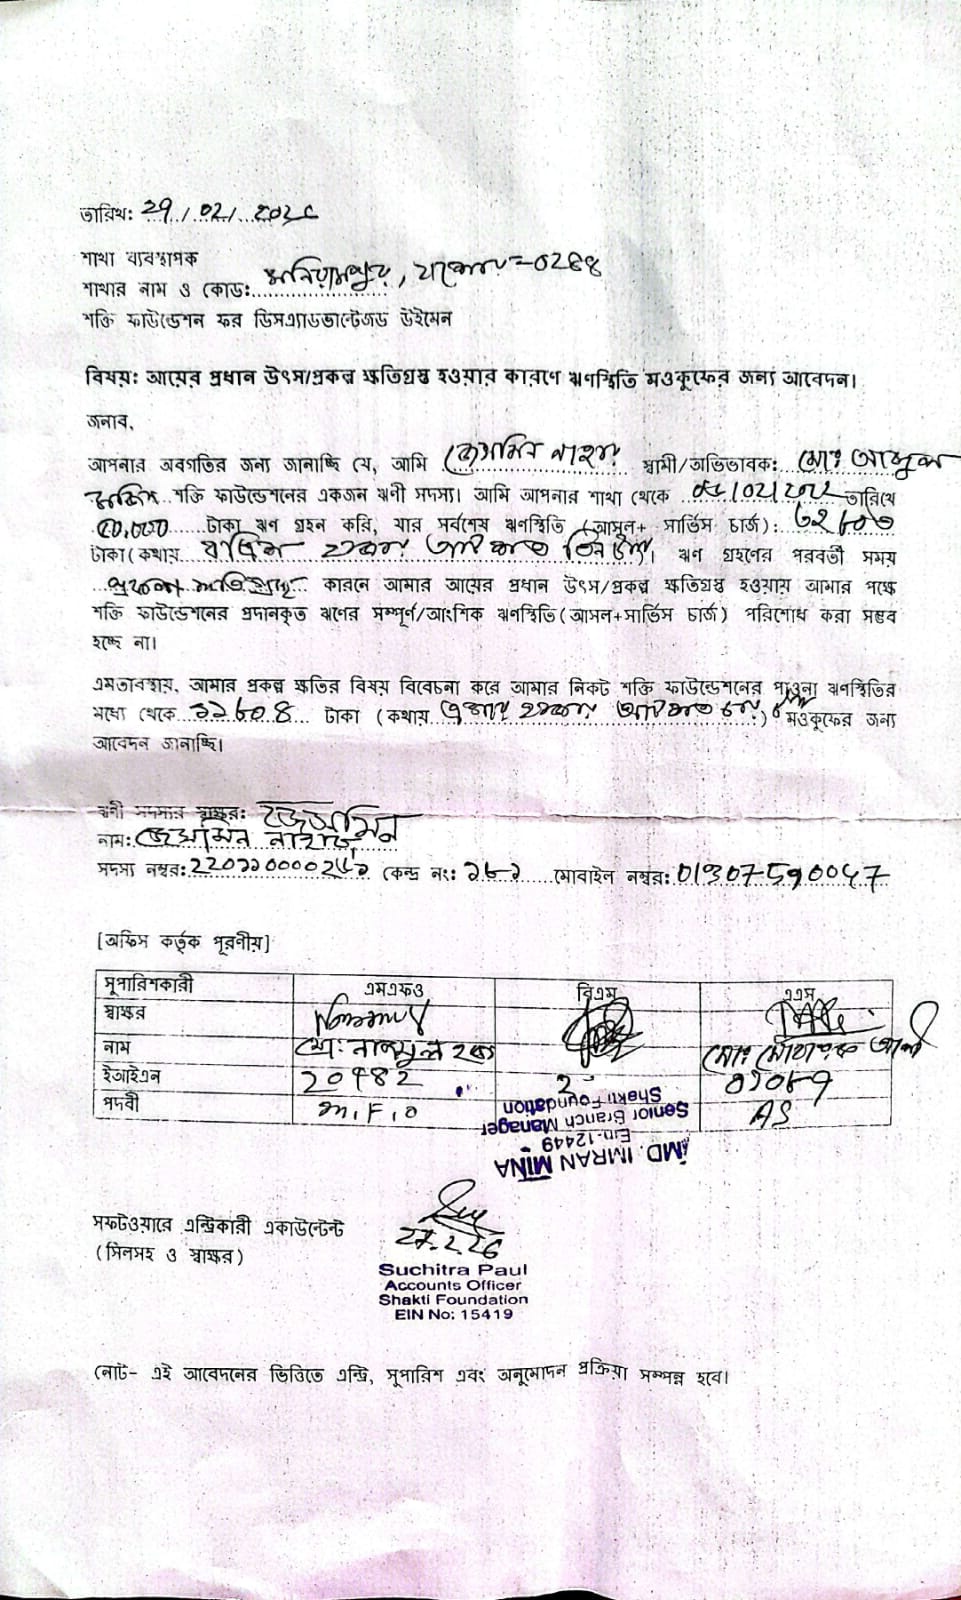 তারিখ: 29/02/২০২৫
শাখা ব্যবস্থাপক
শাখার নাম ও কোড: মনিরামপুর, যশোর=0288
শক্তি ফাউন্ডেশন ফর ডিসএ্যাডভান্টেজড উইমেন
বিষয়: আয়ের প্রধান উৎস/প্রকল্প ক্ষতিগ্রস্ত হওয়ার কারণে ঋণস্থিতি মওকুফের জন্য আবেদন।
জনাব,
আপনার অবগতির জন্য জানাচ্ছি যে, আমি জেসমিন নাহার স্বামী/অভিভাবক: মোঃ আব্দুল
শক্তি ফাউন্ডেশনের একজন ঋণী সদস্য। আমি আপনার শাখা থেকে /02/২০২২ তারিখে
৫০,০০০ টাকা ঋণ গ্রহন করি, যার সর্বশেষ ঋণস্থিতি (আসল+ সার্ভিস চার্জ): ৩২৮০৩
টাকা (কথায় বত্রিশ হাজার আটশত তিন টাকা)। ঋণ গ্রহণের পরবর্তী সময়
প্রকল্প ক্ষতিগ্রস্থ কারনে আমার আয়ের প্রধান উৎস/প্রকল্প ক্ষতিগ্রস্ত হওয়ায় আমার পক্ষে
শক্তি ফাউন্ডেশনের প্রদানকৃত ঋণের সম্পূর্ণ/আংশিক ঋণস্থিতি (আসল+সার্ভিস চার্জ) পরিশোধ করা সম্ভব
হচ্ছে না।
এমতাবস্থায়, আমার প্রকল্প ক্ষতির বিষয় বিবেচনা করে আমার নিকট শক্তি ফাউন্ডেশনের পাওনা ঋণস্থিতির
মধ্যে থেকে ১১৮০৪ টাকা (কথায় এগার হাজার আটশত চার) মওকুফের জন্য
আবেদন জানাচ্ছি।
ঋণী সদস্যর স্বাক্ষর: জেসমিন
নাম: জেসমিন নাহার
সদস্য নম্বর: কেন্দ্র নং: ১৮১ মোবাইল নম্বর:
[অফিস কর্তৃক পূরণীয়]
সুপারিশকারী এমএফও বিএম এএস
স্বাক্ষর
নাম মোঃ নাজমুল হক মোঃ মোবারক আলী
ইআইএন 20482
পদবী M.F.O AS
MD. IMRAN MINA
Ein.-12449
Senior Branch Manager
Shakti Foundation
সফটওয়ারে এন্ট্রিকারী একাউন্টেন্ট
(সিলসহ ও স্বাক্ষর)
Suchitra Paul
Accounts Officer
Shakti Foundation
EIN No: 15419
নোট- এই আবেদনের ভিত্তিতে এন্ট্রি, সুপারিশ এবং অনুমোদন প্রক্রিয়া সম্পন্ন হবে।